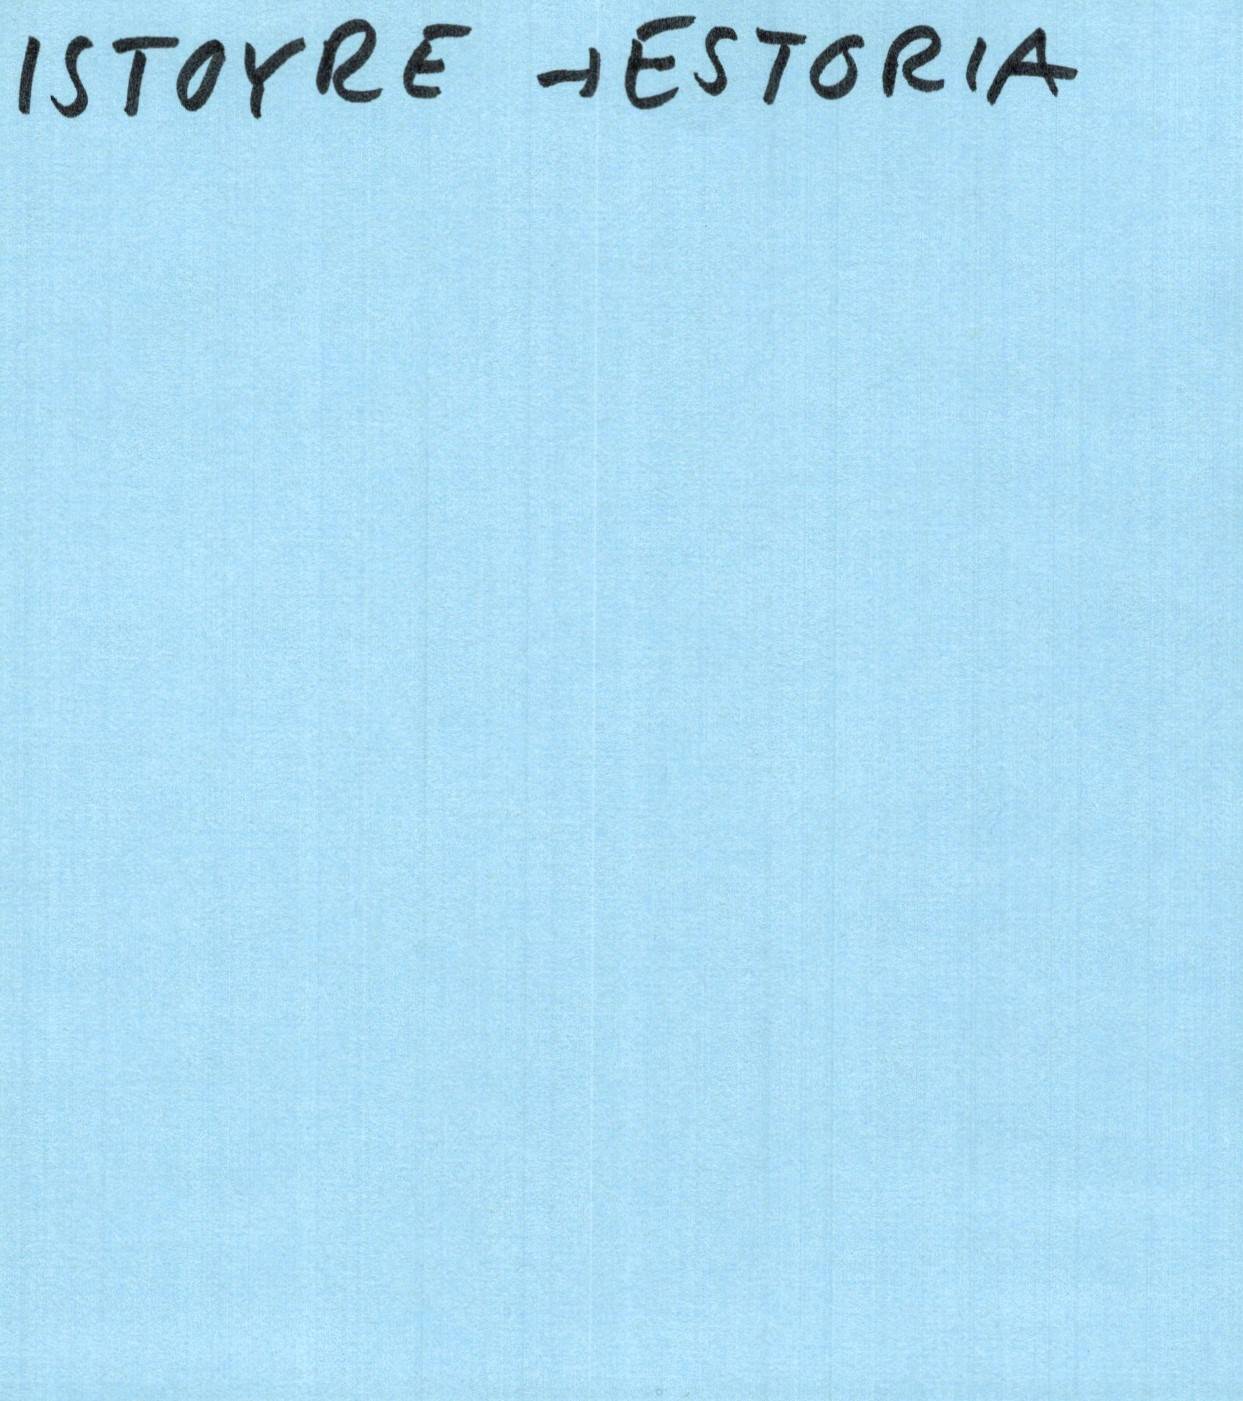 ISTOYRE → ESTORIA